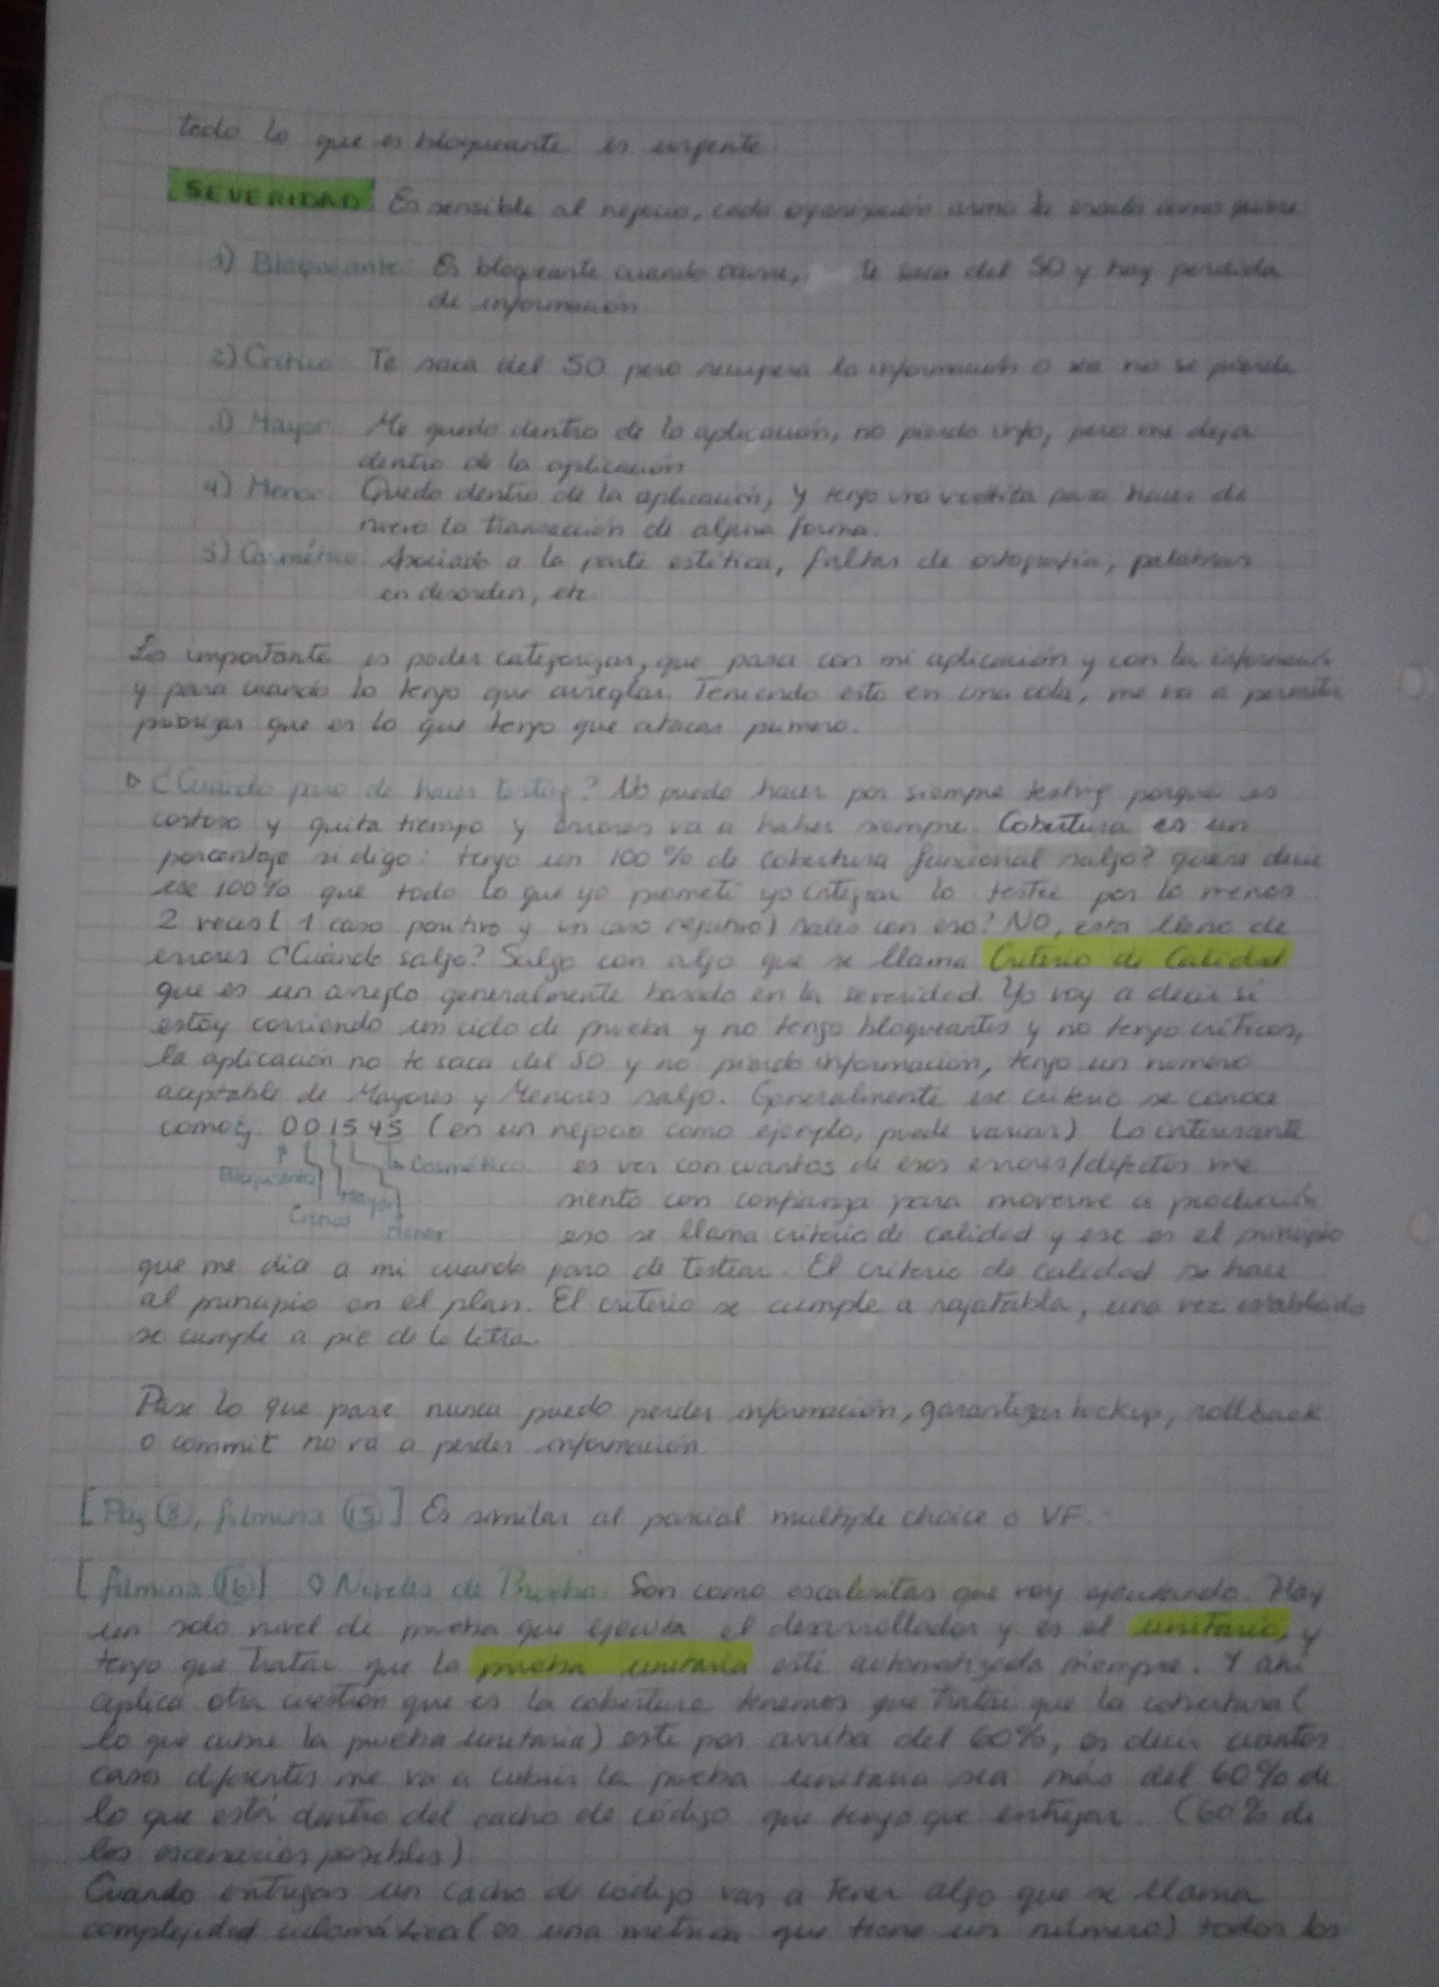 todo lo que es bloqueante es urgente.
SEVERIDAD Es sensible al negocio, cada organización arma la escala como quiere.
1) Bloqueante: Es bloqueante cuando ocurre, te saca del SO y hay perdida
de información
2) Critico: Te saca del SO pero recupera la información o sea no se pierde
3) Mayor: Me quedo dentro de la aplicación, no pierdo info, pero me deja
dentro de la aplicación
4) Menor: Quedo dentro de la aplicación, y tengo una vueltita para hacer de
nuevo la transacción de alguna forma.
5) Cosmético: Asociado a la parte estética, faltas de ortografía, palabras
en desorden, etc.
Lo importante es poder categorizar, que pasa con mi aplicación y con la información
y para cuando lo tengo que arreglar. Teniendo esto en una cola, me va a permitir
priorizar que es lo que tengo que atacar primero.
▷ ¿Cuando paro de hacer testing? No puedo hacer por siempre testing porque es
costoso y quita tiempo y errores va a haber siempre. Cobertura es un
porcentaje si digo: tengo un 100% de cobertura funcional salgo? quiere decir
ese 100% que todo lo que yo prometí yo integrar lo testee por lo menos
2 veces ( 1 caso positivo y un caso negativo) salís con eso? NO, esta lleno de
errores ¿Cuándo salgo? Salgo con algo que se llama Criterio de Calidad
que es un arreglo generalmente basado en la severidad. Yo voy a decir si
estoy corriendo un ciclo de prueba y no tengo bloqueantes y no tengo críticos,
la aplicación no te saca del SO y no pierdo información, tengo un numero
aceptable de Mayores y Menores salgo. Generalmente ese criterio se conoce
como ej. 0 0 15 45 (en un negocio como ejemplo, puede variar) Lo interesante
Bloqueantes Critico Mayor Menor Cosmético es ver con cuantos de esos errores/defectos me
siento con confianza para moverme a producción
eso se llama criterio de calidad y ese es el principio
que me dice a mi cuando paro de testear. El criterio de calidad se hace
al principio en el plan. El criterio se cumple a rajatabla, una vez establecido
se cumple a pie de la letra.
Pase lo que pase nunca puedo perder información, garantizar backup, rollback
o commit no va a perder información
[Pag 8, filmina 15] Es similar al parcial multiple choice o VF.
[filmina 16] ◊ Niveles de Prueba: Son como escaleritas que voy ejecutando. Hay
un solo nivel de prueba que ejecuta el desarrollador y es el unitario, y
tengo que tratar que la prueba unitaria esté automatizada siempre. Y ahí
aplica otra cuestión que es la cobertura tenemos que tratar que la cobertura (
lo que cubre la prueba unitaria) este por arriba del 60%, es decir cuantos
casos diferentes me va a cubrir la prueba unitaria sea más del 60% de
lo que está dentro del cacho de código que tengo que entregar. (60% de
los escenarios posibles)
Cuando entregas un cacho de código vas a tener algo que se llama
complejidad ciclomática (es una metrica que tiene un número) todos los